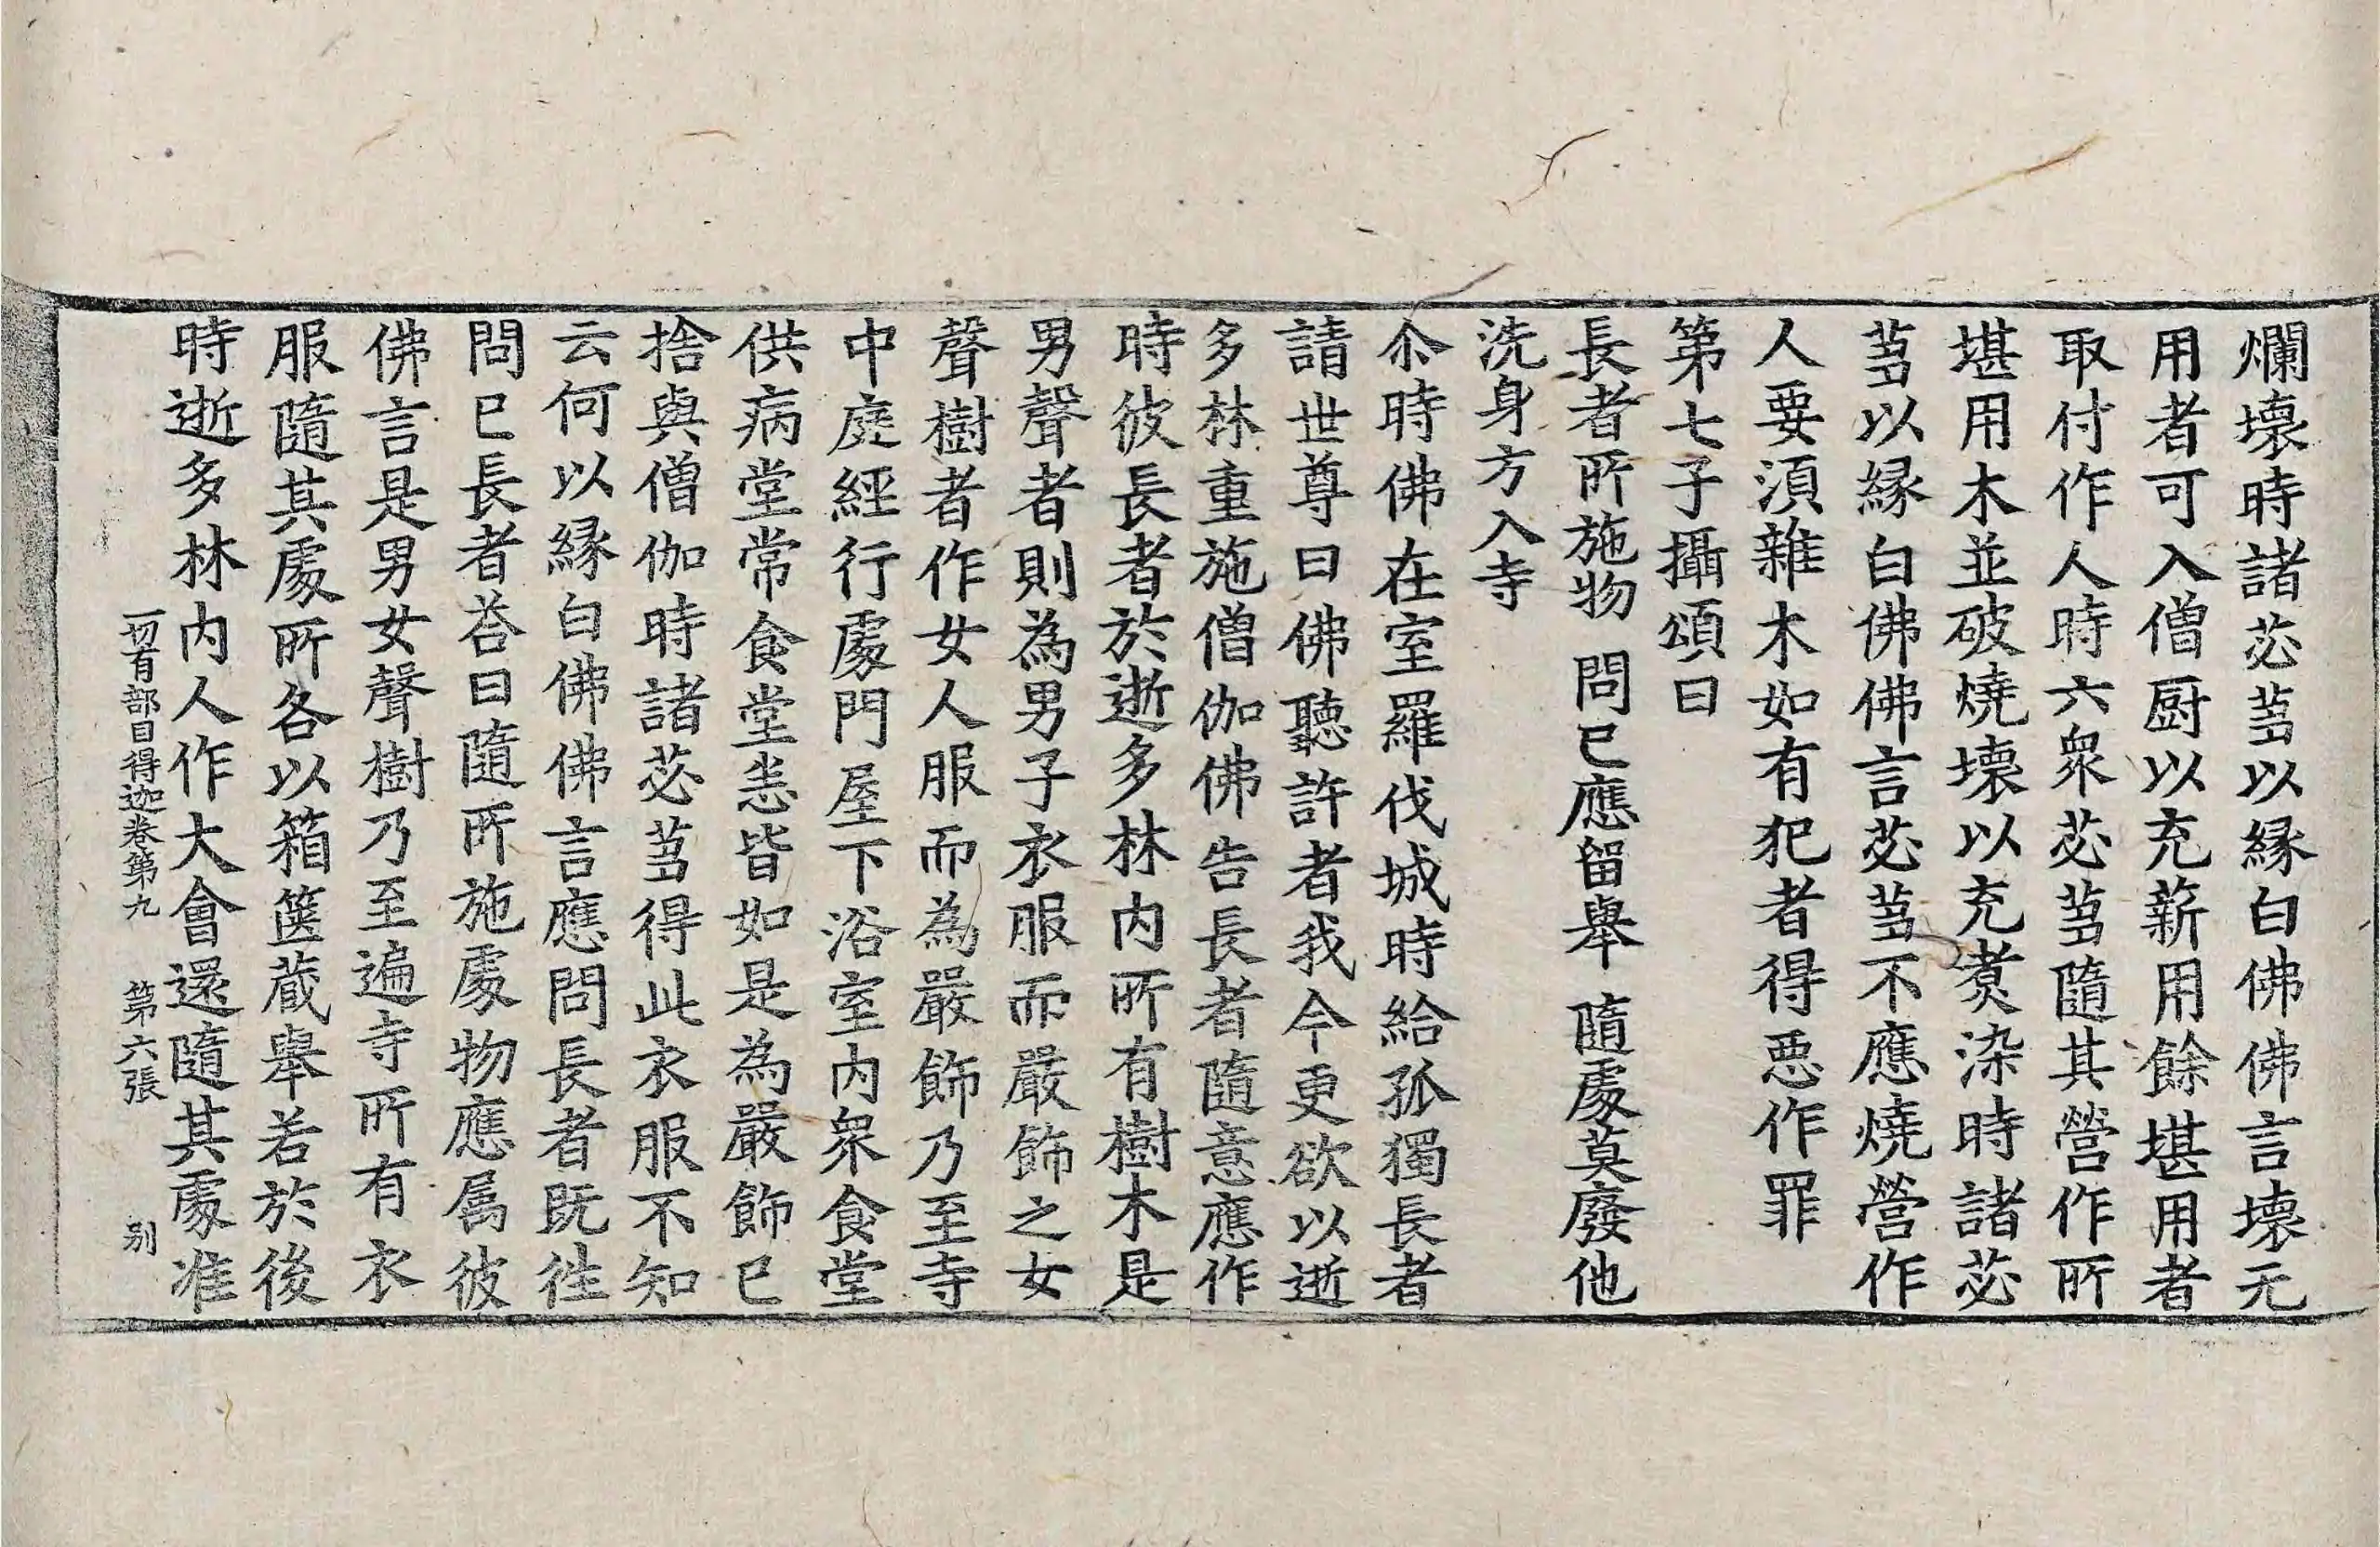 爛壞時諸苾蒭以緣白佛佛言壞无
用者可入僧厨以充薪用餘堪用者
取付作人時六衆苾蒭隨其營作所
堪用木並破燒壞以充煑染時諸苾
蒭以緣白佛佛言苾蒭不應燒營作
人要湏雜木如有犯者得惡作罪
第七子攝頌曰
長者所施物 問已應留舉 隨處莫廢他
洗身方入寺
尒時佛在室羅伐城時給孤獨長者
請世尊曰佛聽許者我今更欲以逝
多林重施僧伽佛告長者隨意應作
時彼長者於逝多林内所有樹木是
男聲者則為男子衣服而嚴飾之女
聲樹者作女人服而為嚴飾乃至寺
中庭經行處門屋下浴室内衆食堂
供病堂常食堂悉皆如是為嚴飾已
捨與僧伽時諸苾蒭得此衣服不知
云何以緣白佛佛言應問長者旣徃
問已長者荅曰隨所施處物應属彼
佛言是男女聲樹乃至遍寺所有衣
服隨其處所各以箱篋蔵舉若於後
時逝多林内人作大會還隨其處准
一切有部目得迦卷第九 第六張 别